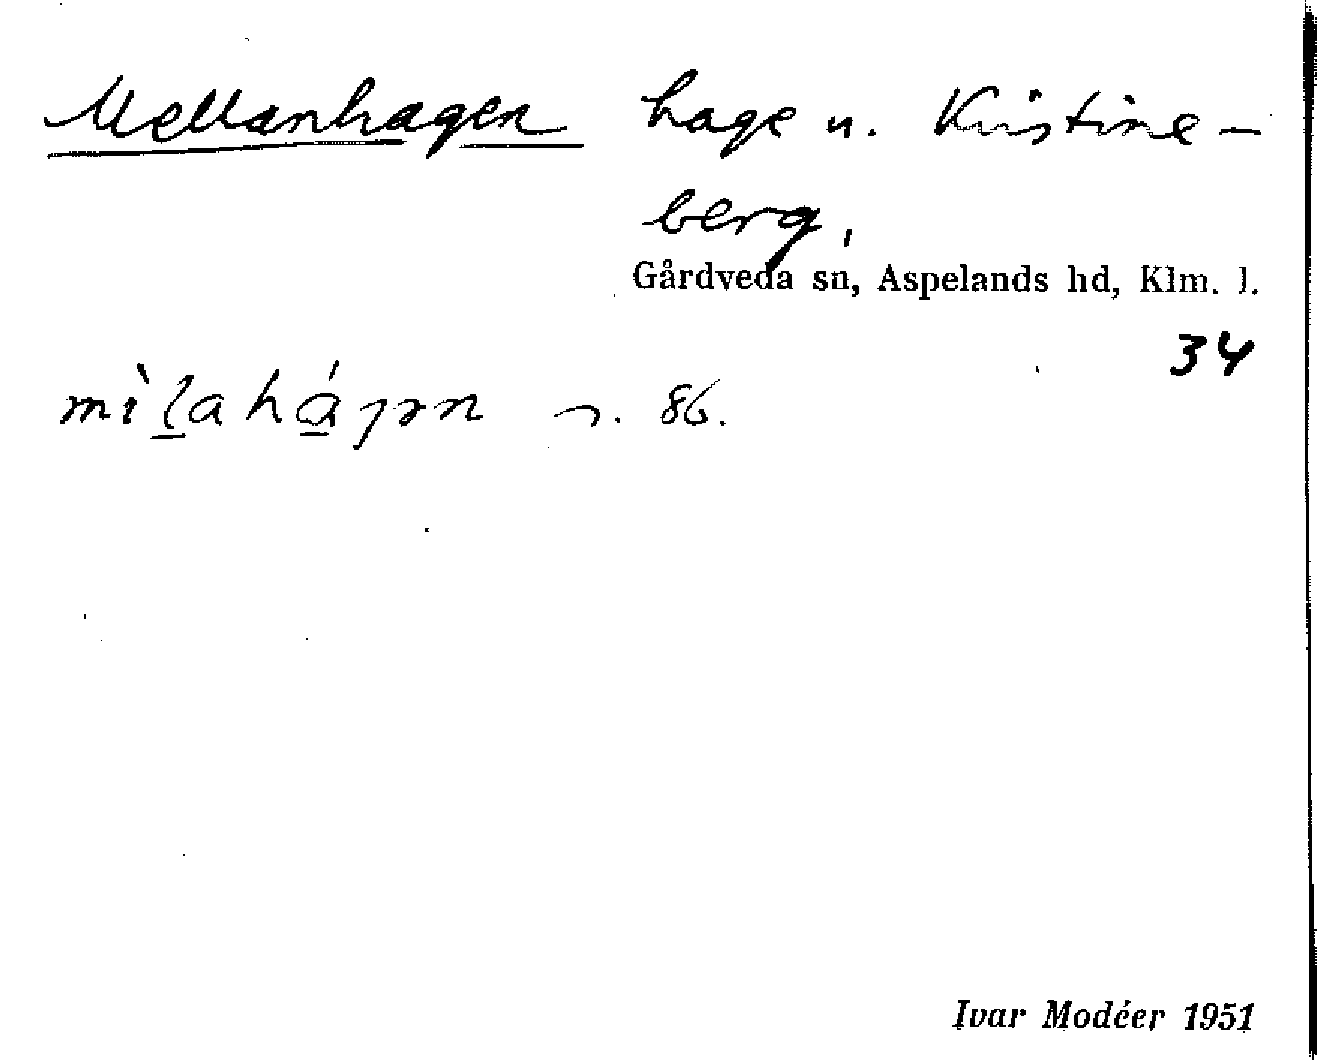 Mellanhagen hage u. Kristine-
berg,
Gårdveda sn, Aspelands hd, Klm. l.
34
mìḻahá̱gən s. 86.
Ivar Modéer 1951